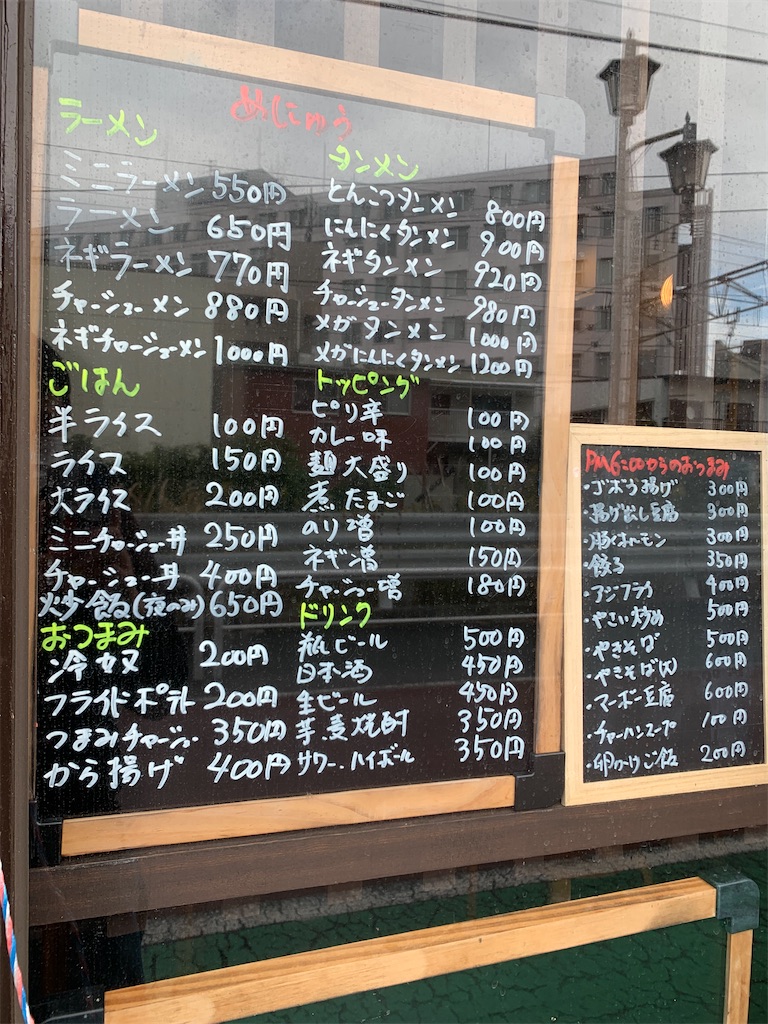 めにゅう
ラーメン
ミニラーメン 550円
ラーメン 650円
ネギラーメン 770円
チャーシューメン 880円
ネギチャーシューメン 1000円
ごはん
半ライス 100円
ライス 150円
大ライス 200円
ミニチャーシュー丼 250円
チャーシュー丼 400円
炒飯(夜のみ) 650円
おつまみ
冷奴 200円
フライドポテト 200円
つまみチャーシュー 350円
から揚げ 400円
タンメン
とんこつタンメン 800円
にんにくタンメン 900円
ネギタンメン 920円
チャーシュータンメン 980円
メガタンメン 1000円
メガにんにくタンメン 1200円
トッピング
ピリ辛 100円
カレー味 100円
麺大盛り 100円
煮たまご 100円
のり増 100円
ネギ増 150円
チャーシュー増 180円
ドリンク
瓶ビール 500円
日本酒 450円
生ビール 450円
芋.麦焼酎 350円
サワー.ハイボール 350円
PM6:00からのおつまみ
・ゴボウ揚げ 300円
・揚げ出し豆腐 300円
・豚ホルモン 300円
・餃子 350円
・アジフライ 400円
・やさい炒め 500円
・やきそば 500円
・やきそば(大) 600円
・マーボー豆腐 600円
・チャーハンスープ 100円
・卵かけご飯 200円